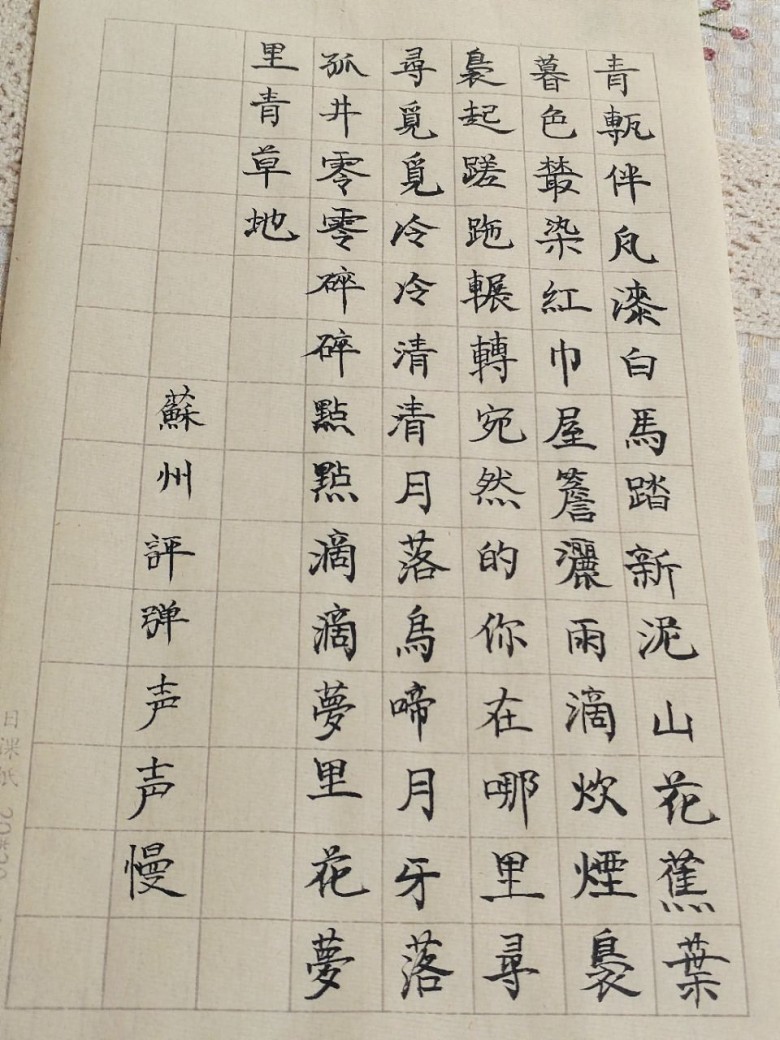 青甎伴瓦漆白馬踏新泥山花蕉葉
暮色叢染紅巾屋簷灑雨滴炊煙裊
裊起蹉跎輾轉宛然的你在哪里尋
尋覓覓冷冷清清月落烏啼月牙落
孤井零零碎碎點點滴滴夢里花夢
里青草地
蘇州評弹声声慢